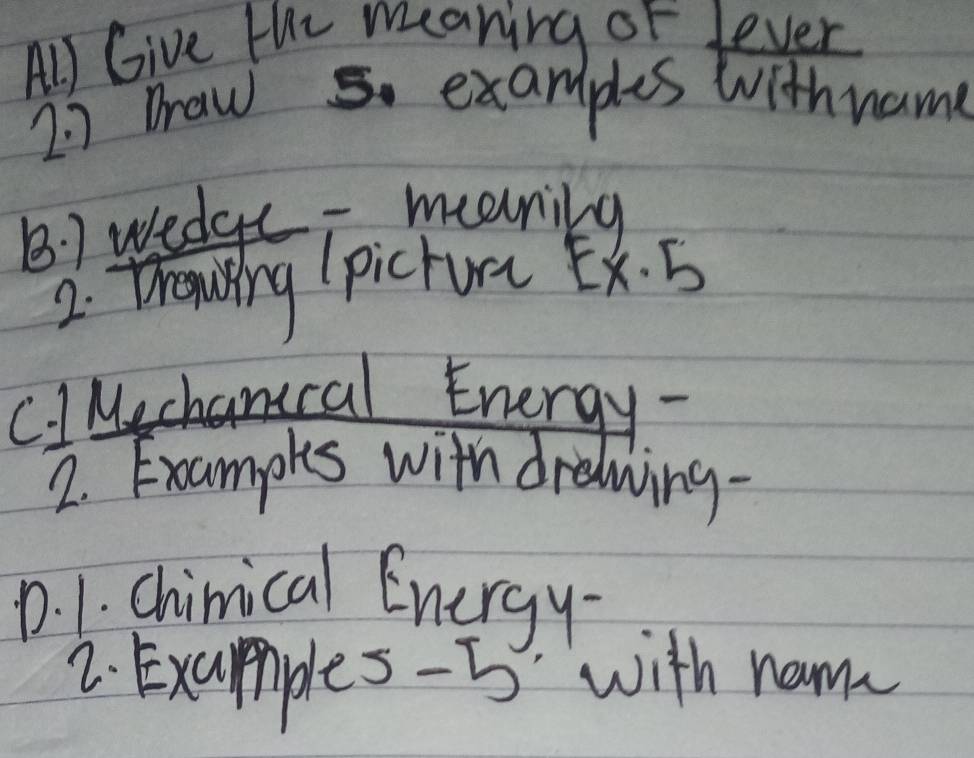 A1.) Give the meaning of lever
2.) Draw 5. examples with name
B.) Wedge - meaning
2. Drawing / picture Ex. 5
C.1 Mechanical Energy -
2. Examples with drawing -
D.1. Chimical Energy -
2. Examples - 5 with name